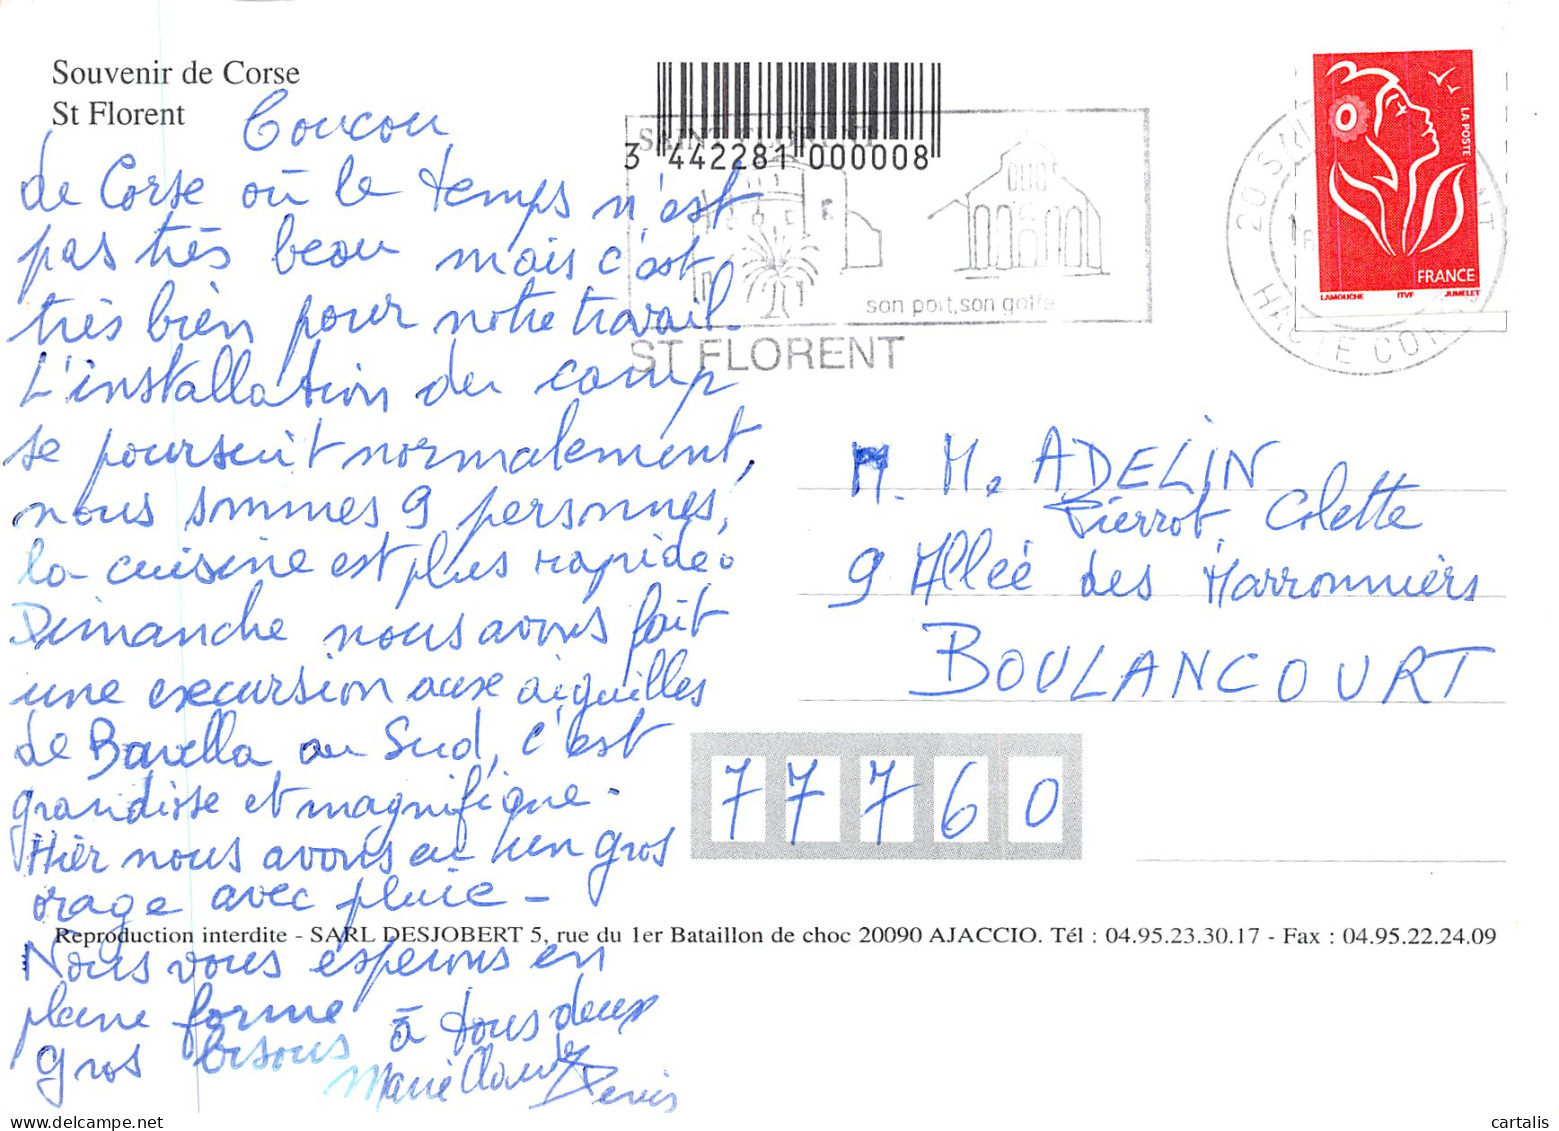 Souvenir de Corse
St Florent
Coucou
de Corse où le temps n'est
pas très beau mais c'est
très bien pour notre travail.
L'installation du camp
se poursuit normalement,
nous sommes 9 personnes,
la cuisine est plus rapide.
Dimanche nous avons fait
une excursion aux aiguilles
de Bavella au Sud, c'est
grandisse et magnifique.
Hier nous avons eu un gros
orage avec pluie -
Nous vous esperons en
pleine forme
gros bisous à tous deux
Marie Claude
Denis
3 442281 000008
SAINT FLORENT
son port, son golfe
ST FLORENT
20 ST FLORENT
HAUTE CORSE
LA POSTE
FRANCE
LAMOUCHE ITVF JUMELET
M. Me ADELIN
Pierrot, Colette
9 Allée des Marronniers
BOULANCOURT
77760
Reproduction interdite - SARL DESJOBERT 5, rue du 1er Bataillon de choc 20090 AJACCIO. Tél : 04.95.23.30.17 - Fax : 04.95.22.24.09
www.delcampe.net
cartalis